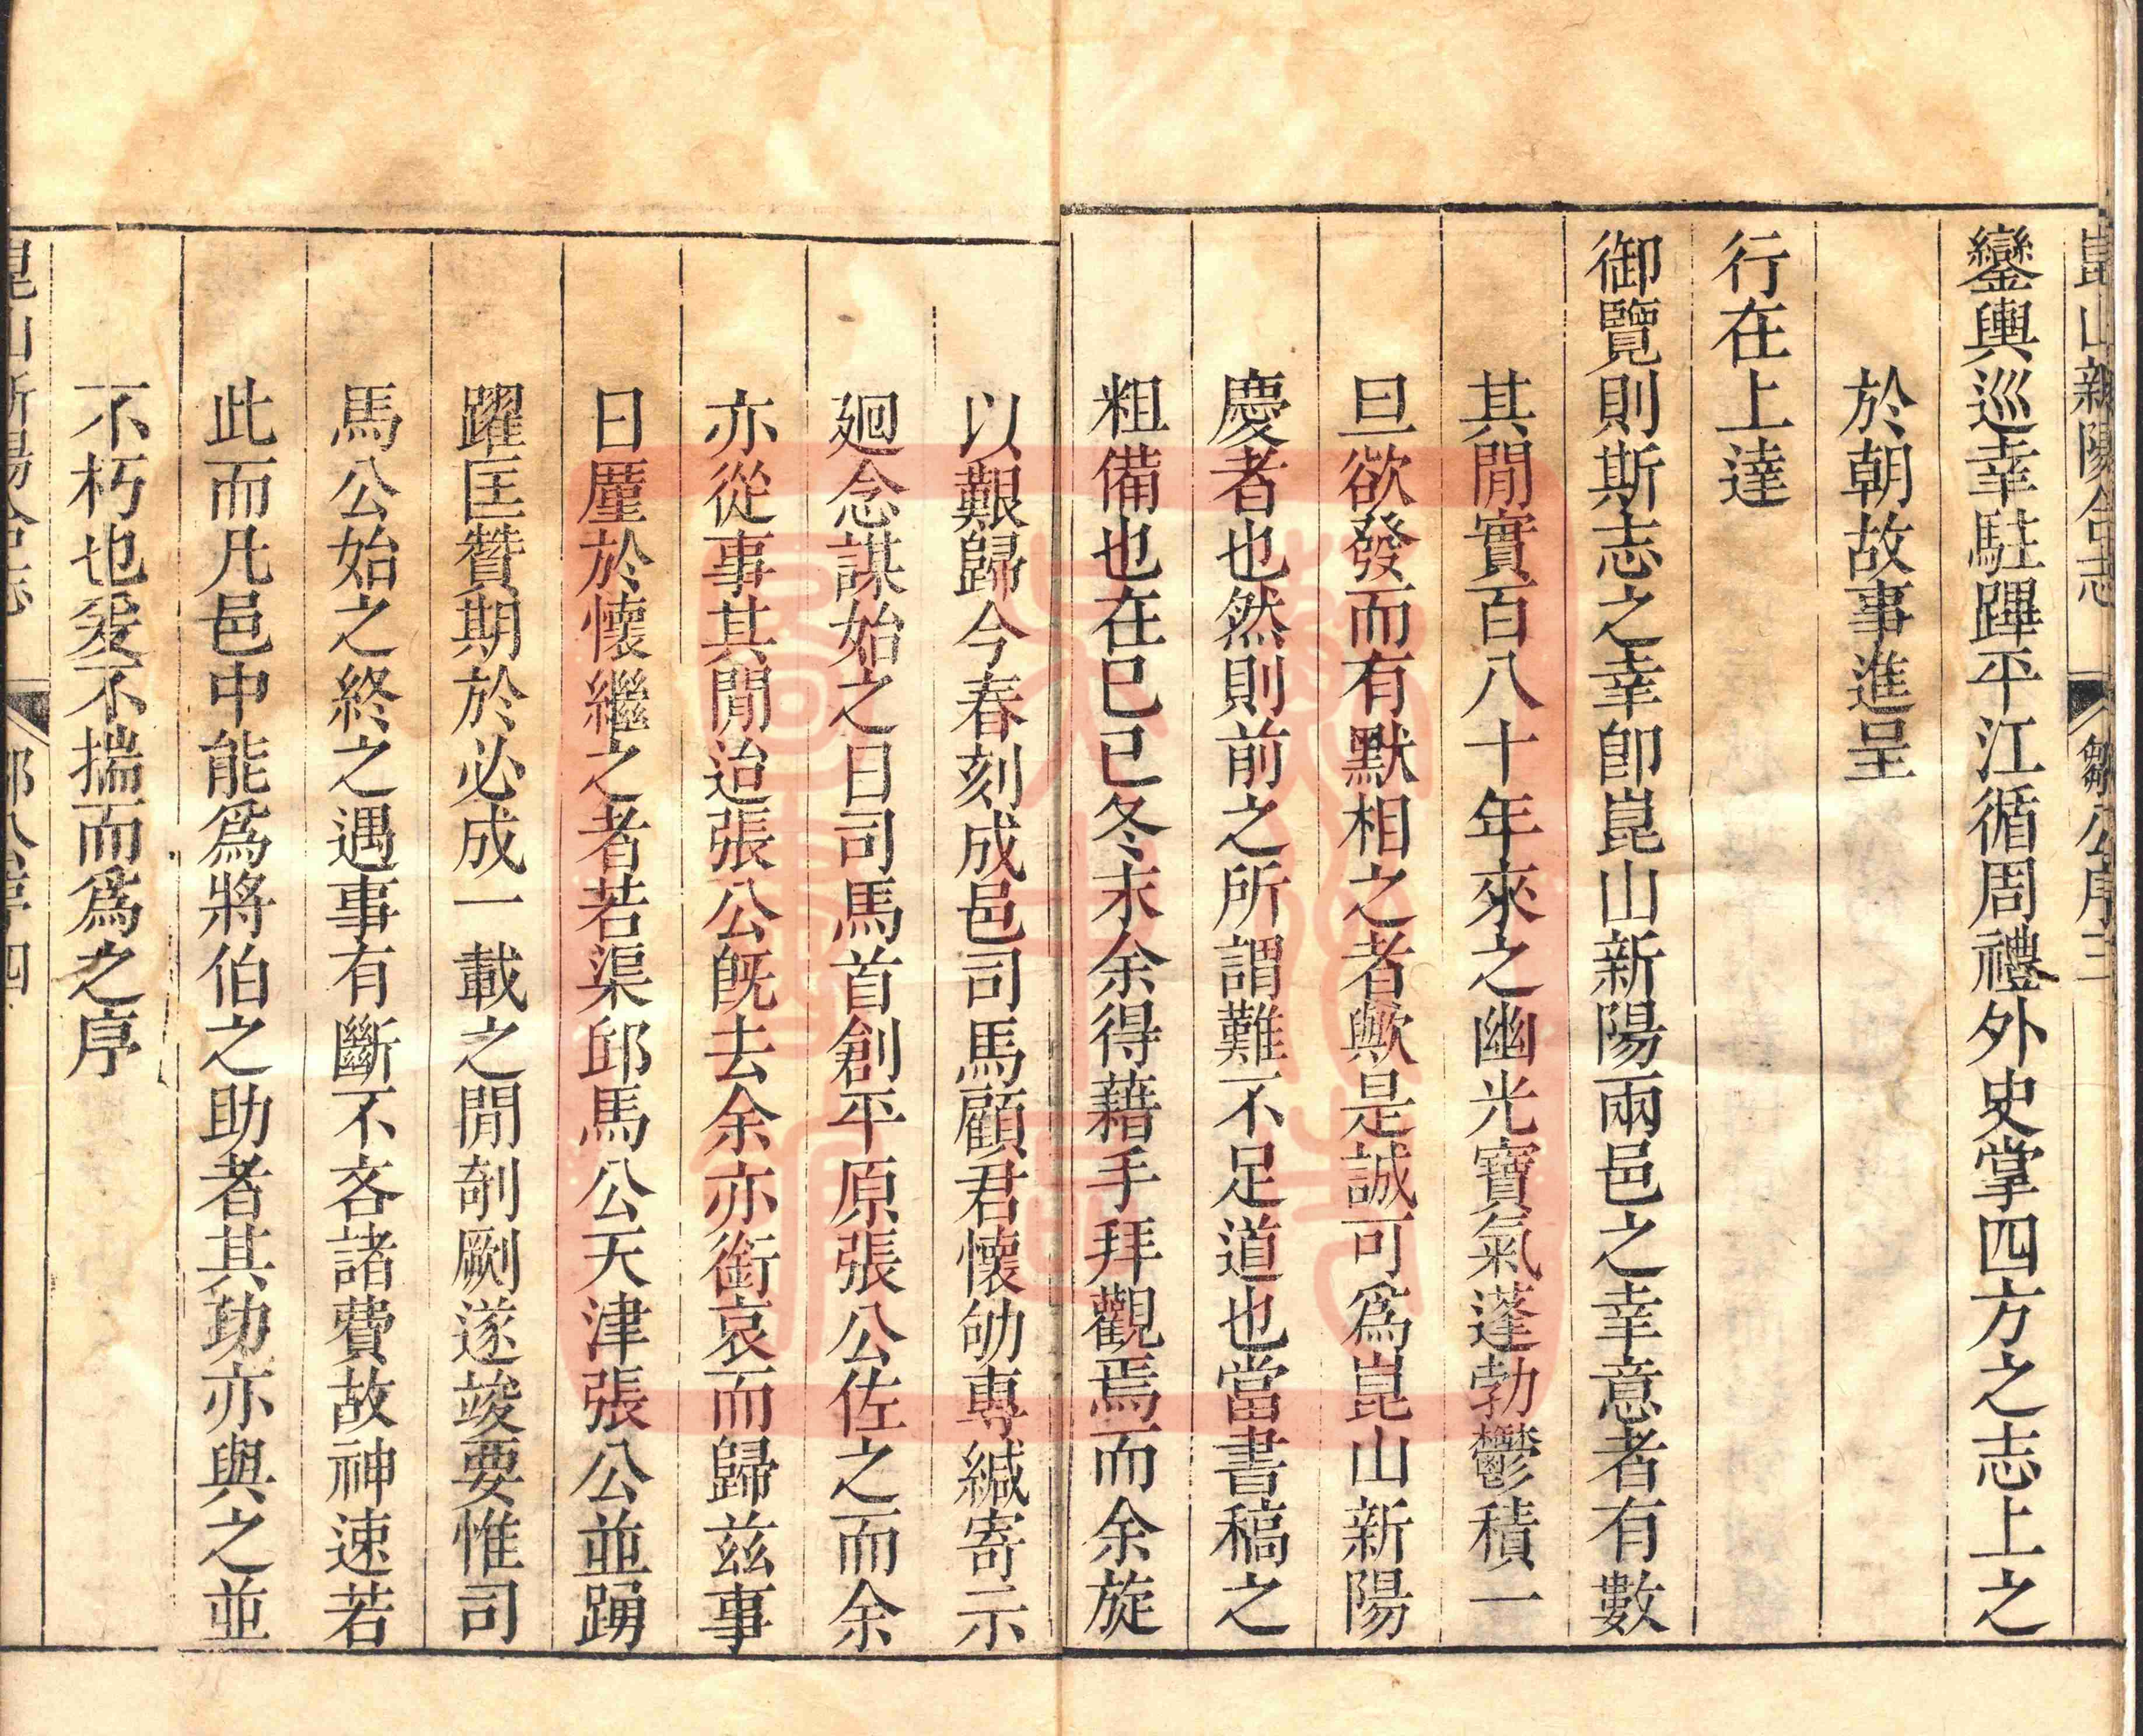 崑山新陽合志　鄒公序三
鑾輿巡幸駐蹕平江循周禮外史掌四方之志上之
於朝故事進呈
行在上達
御覽則斯志之幸卽崑山新陽兩邑之幸意者有數
其閒實百八十年來之幽光寶氣蓬勃鬱積一
旦欲發而有默相之者歟是誠可爲崑山新陽
慶者也然則前之所謂難不足道也當書稿之
粗備也在已巳冬末余得藉手拜觀焉而余旋
以艱歸今春刻成邑司馬顧君懷劬專緘寄示
廻念謀始之日司馬首創平原張公佐之而余
亦從事其閒迨張公旣去余亦銜哀而歸茲事
日廑於懷繼之者若渠邱馬公天津張公並踴
躍匡贊期於必成一載之閒剞劂遂竣要惟司
馬公始之終之遇事有斷不吝諸費故神速若
此而凡邑中能爲將伯之助者其功亦與之並
不朽也爰不揣而爲之序
崑山新陽合志　鄒公序四